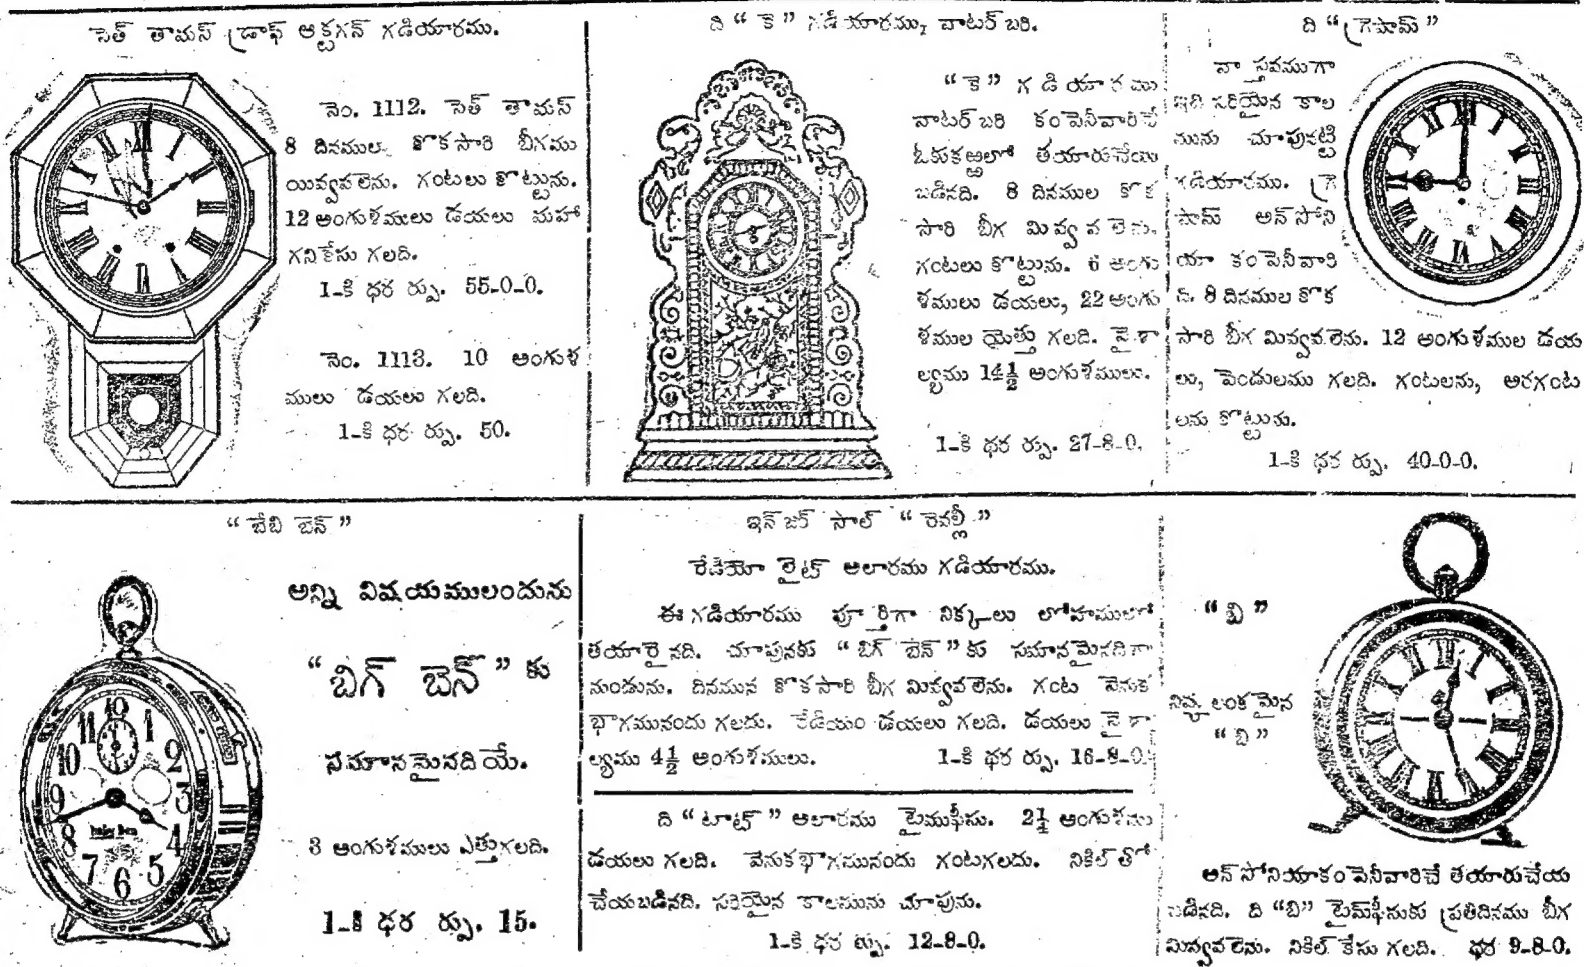 సెత్ తామస్ డ్రాఫ్ ఆక్టగన్ గడియారము.
నెం. 1112. సెత్ తామస్
8 దినముల కొకసారి బీగము
యివ్వవలెను. గంటలు కొట్టును.
12 అంగుళములు డయలు మహా
గనికేసు గలది.
1-కి ధర ర్పు. 55-0-0.
నెం. 1113. 10 అంగుళ
ములు డయలు గలది.
1-కి ధర ర్పు. 50.
ది “ కె ” గడియారము, వాటర్ బరి.
“ కె ” గడియారము
వాటర్ బరి కంపెనీవారిచే
ఓకుకఱ్ఱలో తయారుచేయ
బడినది. 8 దినముల కొక
సారి బీగ మివ్వవలెను.
గంటలు కొట్టును. 6 అంగు
ళములు డయలు, 22 అంగు
ళముల యెత్తు గలది. వైశా
ల్యము 14½ అంగుళములు.
1-కి ధర ర్పు. 27-8-0.
ది “ గ్రెషామ్ ”
వాస్తవముగా
ఇది సరియైన కాల
మును చూపునట్టి
గడియారము. గ్రె
షామ్ అన్‌సోని
యా కంపెనీవారి
ది. 8 దినముల కొక
సారి బీగ మివ్వవలెను. 12 అంగుళముల డయ
లు, పెండులము గలది. గంటలను, అరగంట
లను కొట్టును.
1-కి ధర ర్పు. 40-0-0.
“ బేబి బెన్ ”
అన్ని విషయములందును
“ బిగ్ బెన్ ” కు
సమానమైనదియే.
3 అంగుళములు ఎత్తుగలది.
1-కి ధర ర్పు. 15.
11 12 1
10 2
9 3
8 4
7 6 5
baby Ben
ఇన్‌జర్ సాల్ “ రెవల్లీ ”
రేడియో లైట్ అలారము గడియారము.
ఈ గడియారము పూర్తిగా నిక్కలు లోహములో
తయారైనది. చూపునకు “ బిగ్ బెన్ ” కు సమానమైనదిగా
నుండును. దినమున కొకసారి బీగ మివ్వవలెను. గంట వెనుక
భాగమునందు గలదు. రేడియం డయలు గలది. డయలు వైశా
ల్యము 4½ అంగుళములు. 1-కి ధర ర్పు. 16-8-0.
ది “ టాట్ ” అలారము టైముఫీసు. 2¼ అంగుళము
డయలు గలది. వెనుకభాగమునందు గంటగలదు. నికిల్ తో
చేయబడినది. సరియైన కాలమును చూపును.
1-కి ధర ర్పు. 12-8-0.
“ బి ”
నిష్కలంకమైన
“ బి ”
అన్‌సోనియాకంపెనీవారిచే తయారుచేయ
బడినది. ది “బి” టైమ్‌ఫీసుకు ప్రతిదినము బీగ
మివ్వవలెను. నికిల్ కేసు గలది. ధర 9-8-0.